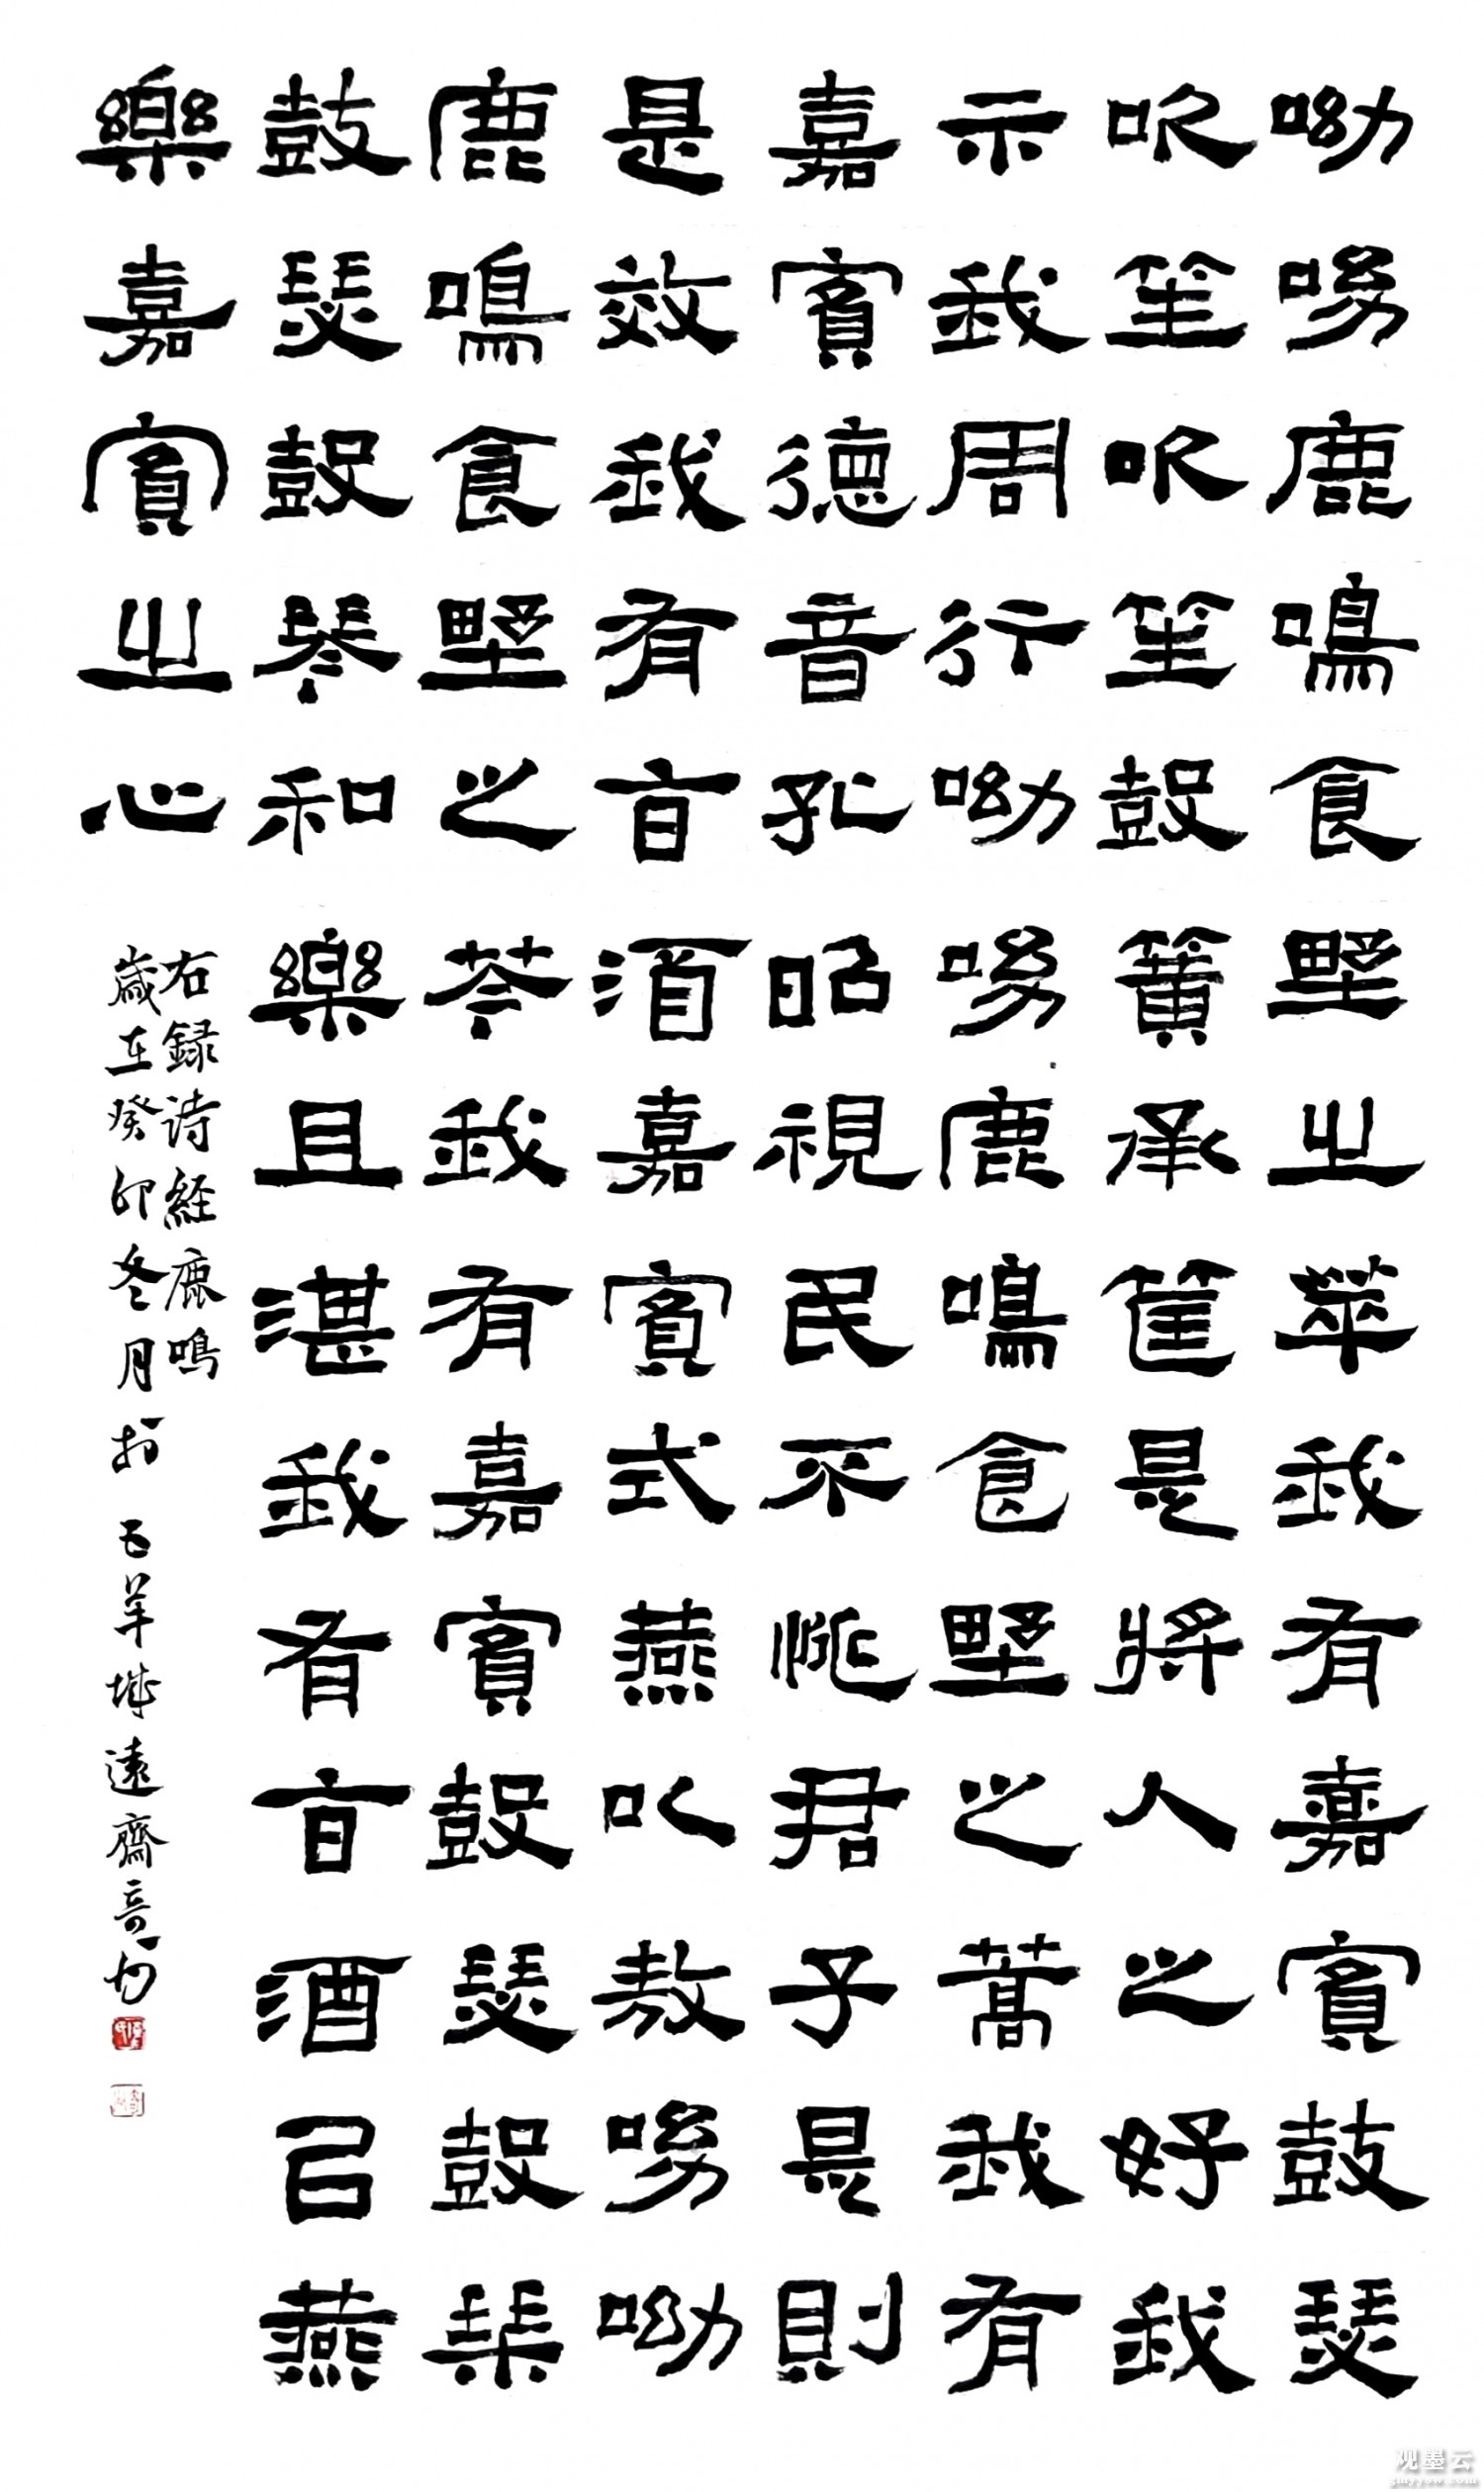 呦呦鹿鳴食野之苹我有嘉賓鼓瑟
吹笙吹笙鼓簧承筐是將人之好我
示我周行呦呦鹿鳴食野之蒿我有
嘉賓德音孔昭視民不恌君子是則
是效我有旨酒嘉賓式燕以敖呦呦
鹿鳴食野之芩我有嘉賓鼓瑟鼓琴
鼓瑟鼓琴和樂且湛我有旨酒以燕
樂嘉賓之心
右録诗経鹿鳴
歲在癸卯冬月於五羊城遠齋
观墨云